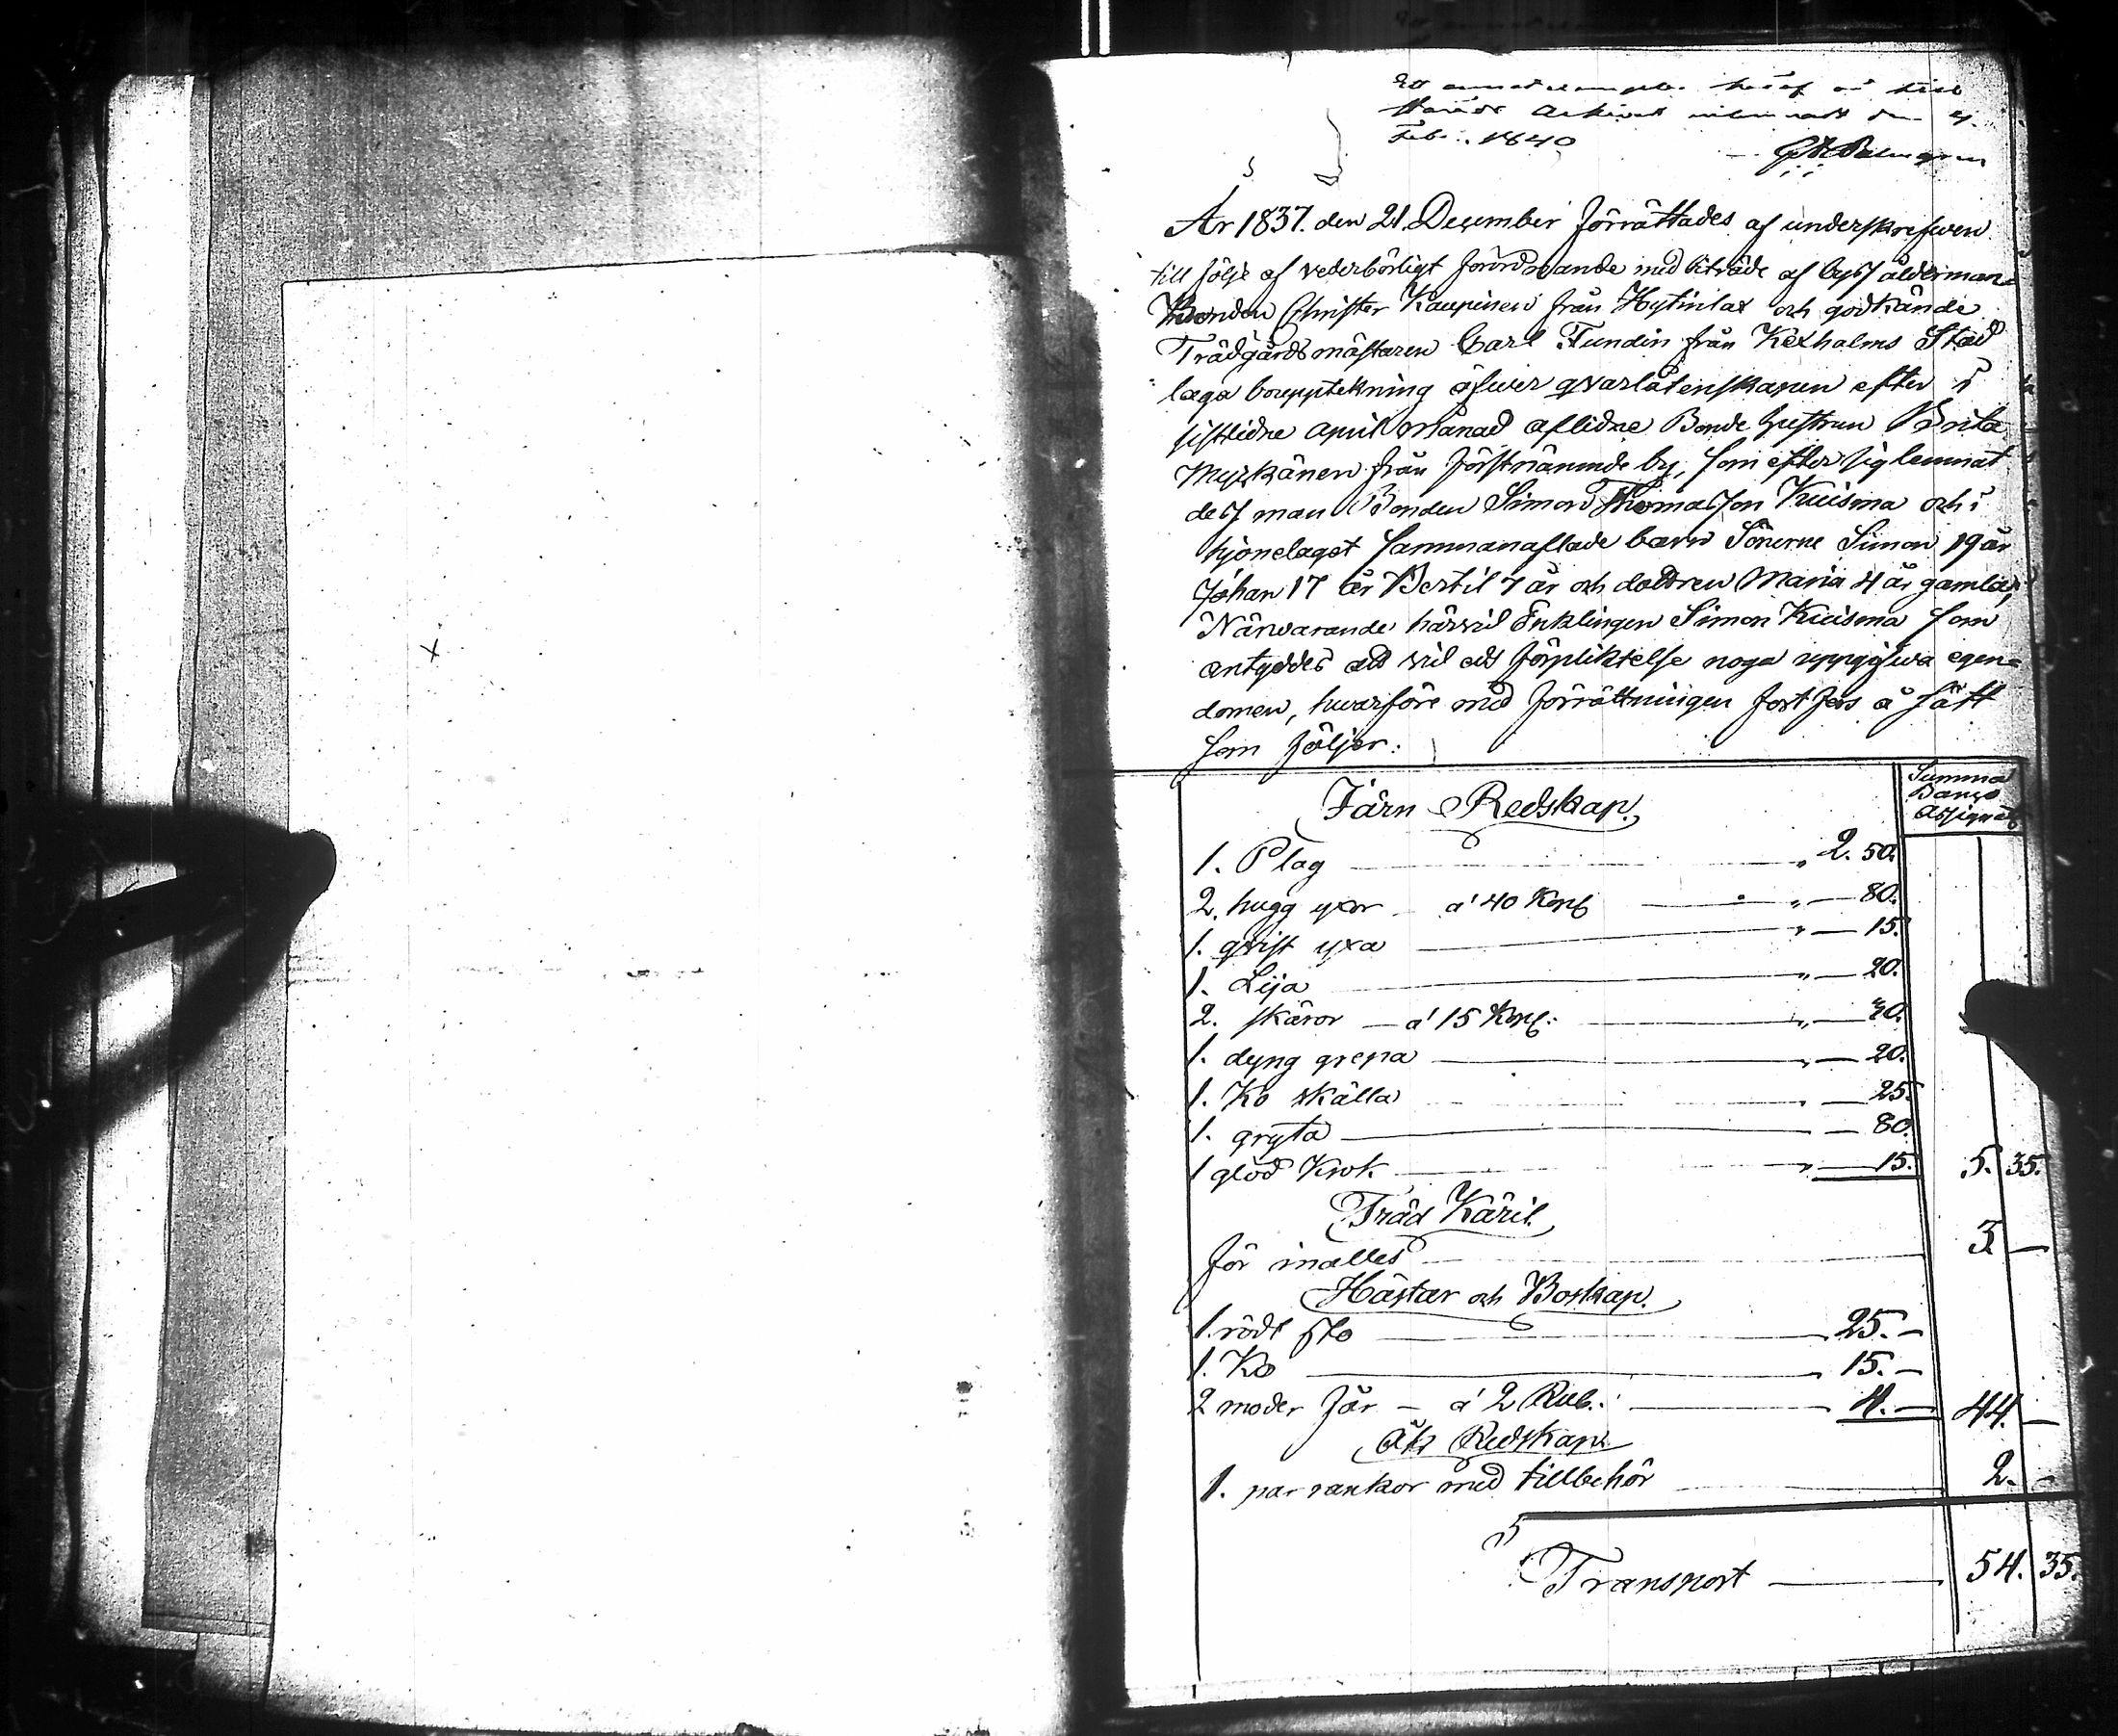 Ett annat exemplar häraf är till
Härads Arkivet inlemnadt den 4.
Feb: 1840
År 1837. den 21. December förrättades af underskrefwen
till följe af vederbörligt förordnande med biträde af byss ålderman
Bonden Christer Kaupinen från Hytinlax och godkände
Trädgårdsmästaren Carl Fundin från Kexholms Stad
laga bouppteckning öfwer qvarlåtenskapen efter i
sistlidne april Månad aflidne Bonde hustrun Brita
Myskänen från förstnämnde by, som efter sig lemnat
dess man Bonden Simon Thomasson Kuisma och i
hjonelaget sammanaflade barn Sönerne Simon 19 år
Johan 17 år Bertil 7 år och dottren Maria 4 år gamla,
Närwarande härvid Enklingen Simon Kuisma som
antyddes att vid eds förpliktelse noga uppgifwa egen=
domen, hwarföre med förrättningen fortfors å sätt
som följer:
Summa
Banco
Assignat
Järn Redskap.
1. Plog „ 2. 50.
2. hugg yxor à 40 Kop: „ — 80.
1. qvist yxa „ — 15.
1. Lija „ — 20.
2. skäror — à 15 Kop: „ — 30.
1. dyng grepa „ — 20.
1. Ko skälla „ — 25.
1. gryta — 80.
1 glöd Krok „ — 15. 5. 35.
Träd Käril.
för inalles 3. —
Hästar och Boskap.
1. rödt sto 25. —
1. Ko 15. —
2 moder får — à 2 Rub: 4. — 44. —
Åk Redskap
1. par rankor med tillbehör 2. —
Transport — 54. 35.